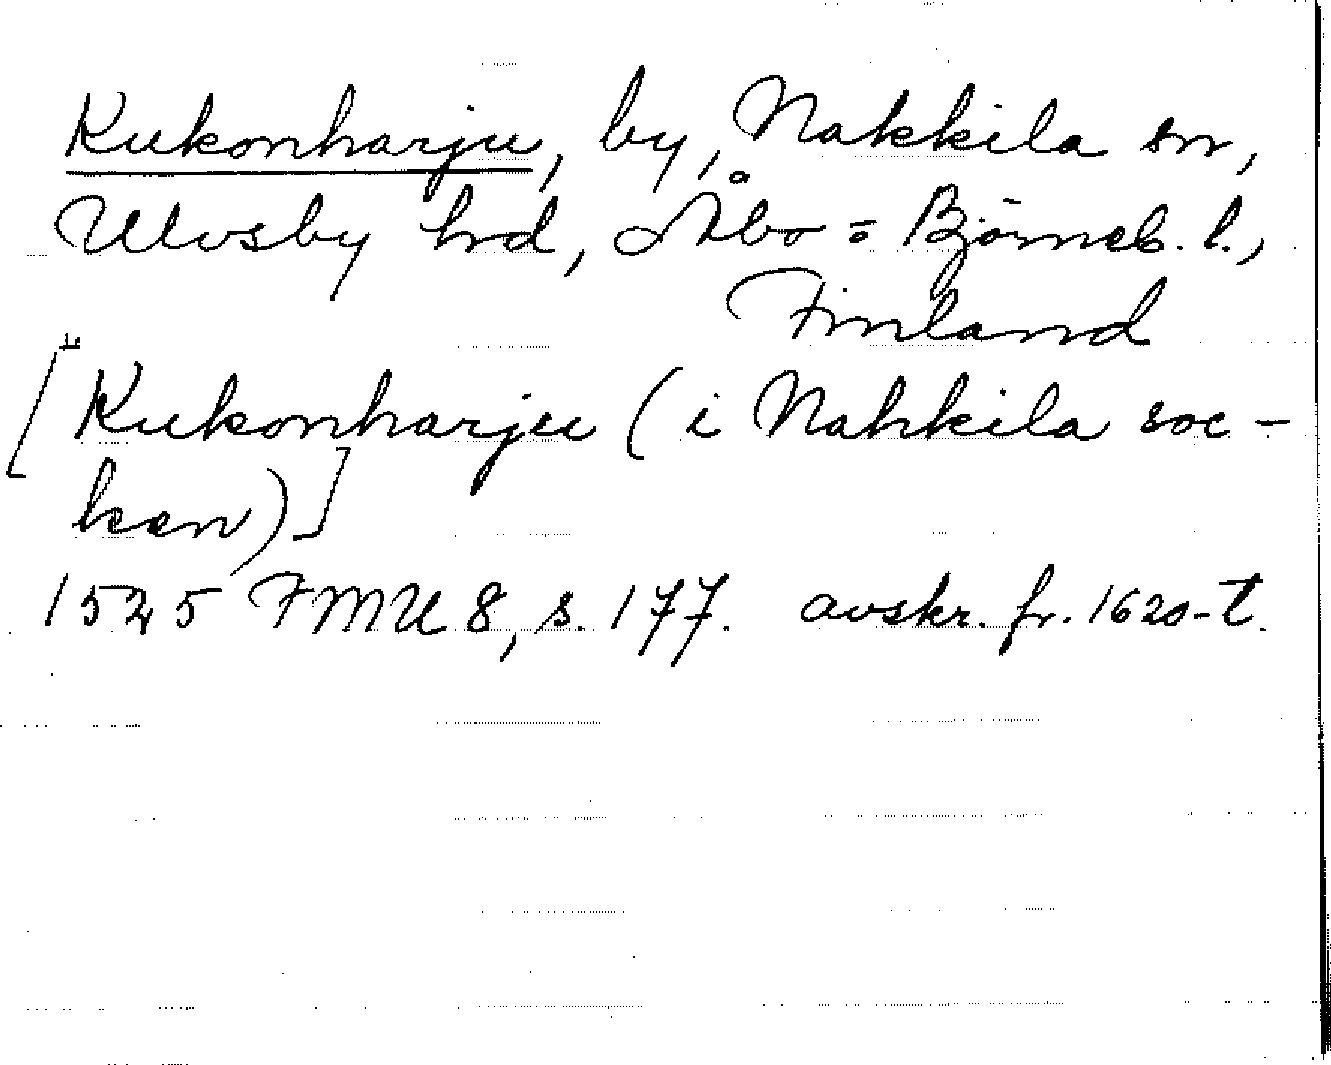 Kukonharju, by, Nakkila sn,
Ulvsby hrd, Åbo = Björneb. l.,
Finland
[Kukonharju (i Nakkila soc-
ken)]
1525 FMU 8, s. 177. avskr. fr. 1620-t.